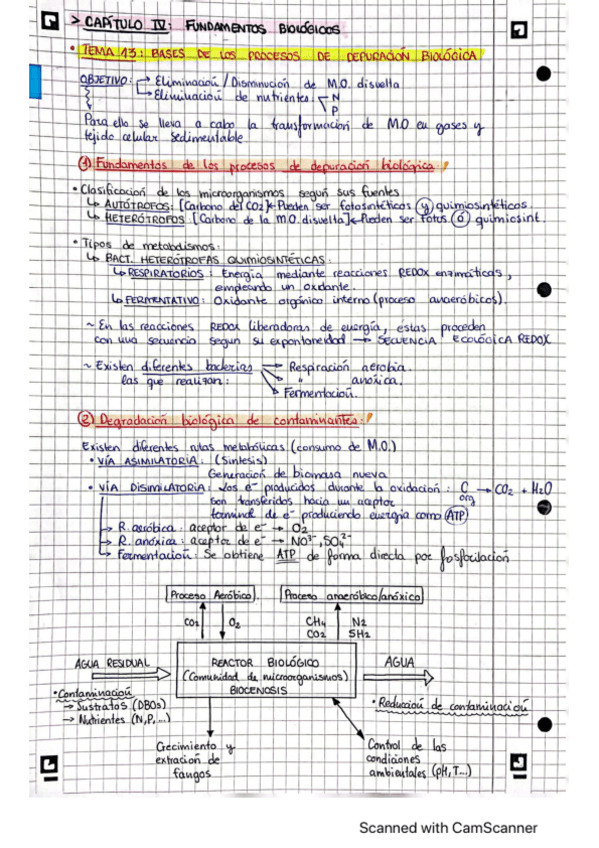 > CAPÍTULO IV: FUNDAMENTOS BIOLÓGICOS
• TEMA 13: BASES DE LOS PROCESOS DE DEPURACIÓN BIOLÓGICA
OBJETIVO: → Eliminación / Disminución de M.O. disuelta
→ Eliminación de nutrientes: N
P
Para ello se lleva a cabo la transformación de M.O en gases y
tejido celular sedimentable.
① Fundamentos de los procesos de depuración biológica:
• Clasificación de los microorganismos según sus fuentes
↳ AUTÓTROFOS: [Carbono del CO2] ← Pueden ser fotosintéticos y quimiosintéticos.
↳ HETERÓTROFOS [Carbono de la M.O. disuelta] ← Pueden ser fotos ó quimiosint.
• Tipos de metabolismos:
↳ BACT. HETERÓTROFAS QUIMIOSINTÉTICAS:
↳ RESPIRATORIOS: Energía mediante reacciones REDOX enzimáticas,
empleando un oxidante.
↳ FERMENTATIVO: Oxidante orgánico interno (proceso anaeróbicos).
~ En las reacciones REDOX liberadoras de energía, éstas proceden
con una secuencia según su espontaneidad → SECUENCIA ECOLÓGICA REDOX
~ Existen diferentes bacterias → Respiración aerobia.
las que realizan: → " anóxica.
→ Fermentación.
② Degradación biológica de contaminantes:
Existen diferentes rutas metabólicas (consumo de M.O.)
• VÍA ASIMILATORIA: (Síntesis)
Generación de biomasa nueva
• VÍA DISIMILATORIA: Los e⁻ producidos durante la oxidación: C org → CO2 + H2O
son transferidos hacia un aceptor
terminal de e⁻ produciendo energía como ATP
→ R. aeróbica: aceptor de e⁻ → O2
→ R. anóxica: aceptor de e⁻ → NO³⁻, SO4²⁻
→ Fermentación: Se obtiene ATP de forma directa por fosforilación
Proceso Aeróbico
Proceso anaeróbico/anóxico
CO2 O2
CH4 N2
CO2 SH2
AGUA RESIDUAL
REACTOR BIOLÓGICO
(Comunidad de microorganismos)
BIOCENOSIS
AGUA
• Contaminación
→ Sustratos (DBOs)
→ Nutrientes (N,P,...)
• Reducción de contaminación
Crecimiento y
extracción de
fangos
Control de las
condiciones
ambientales (pH, T...)
Scanned with CamScanner